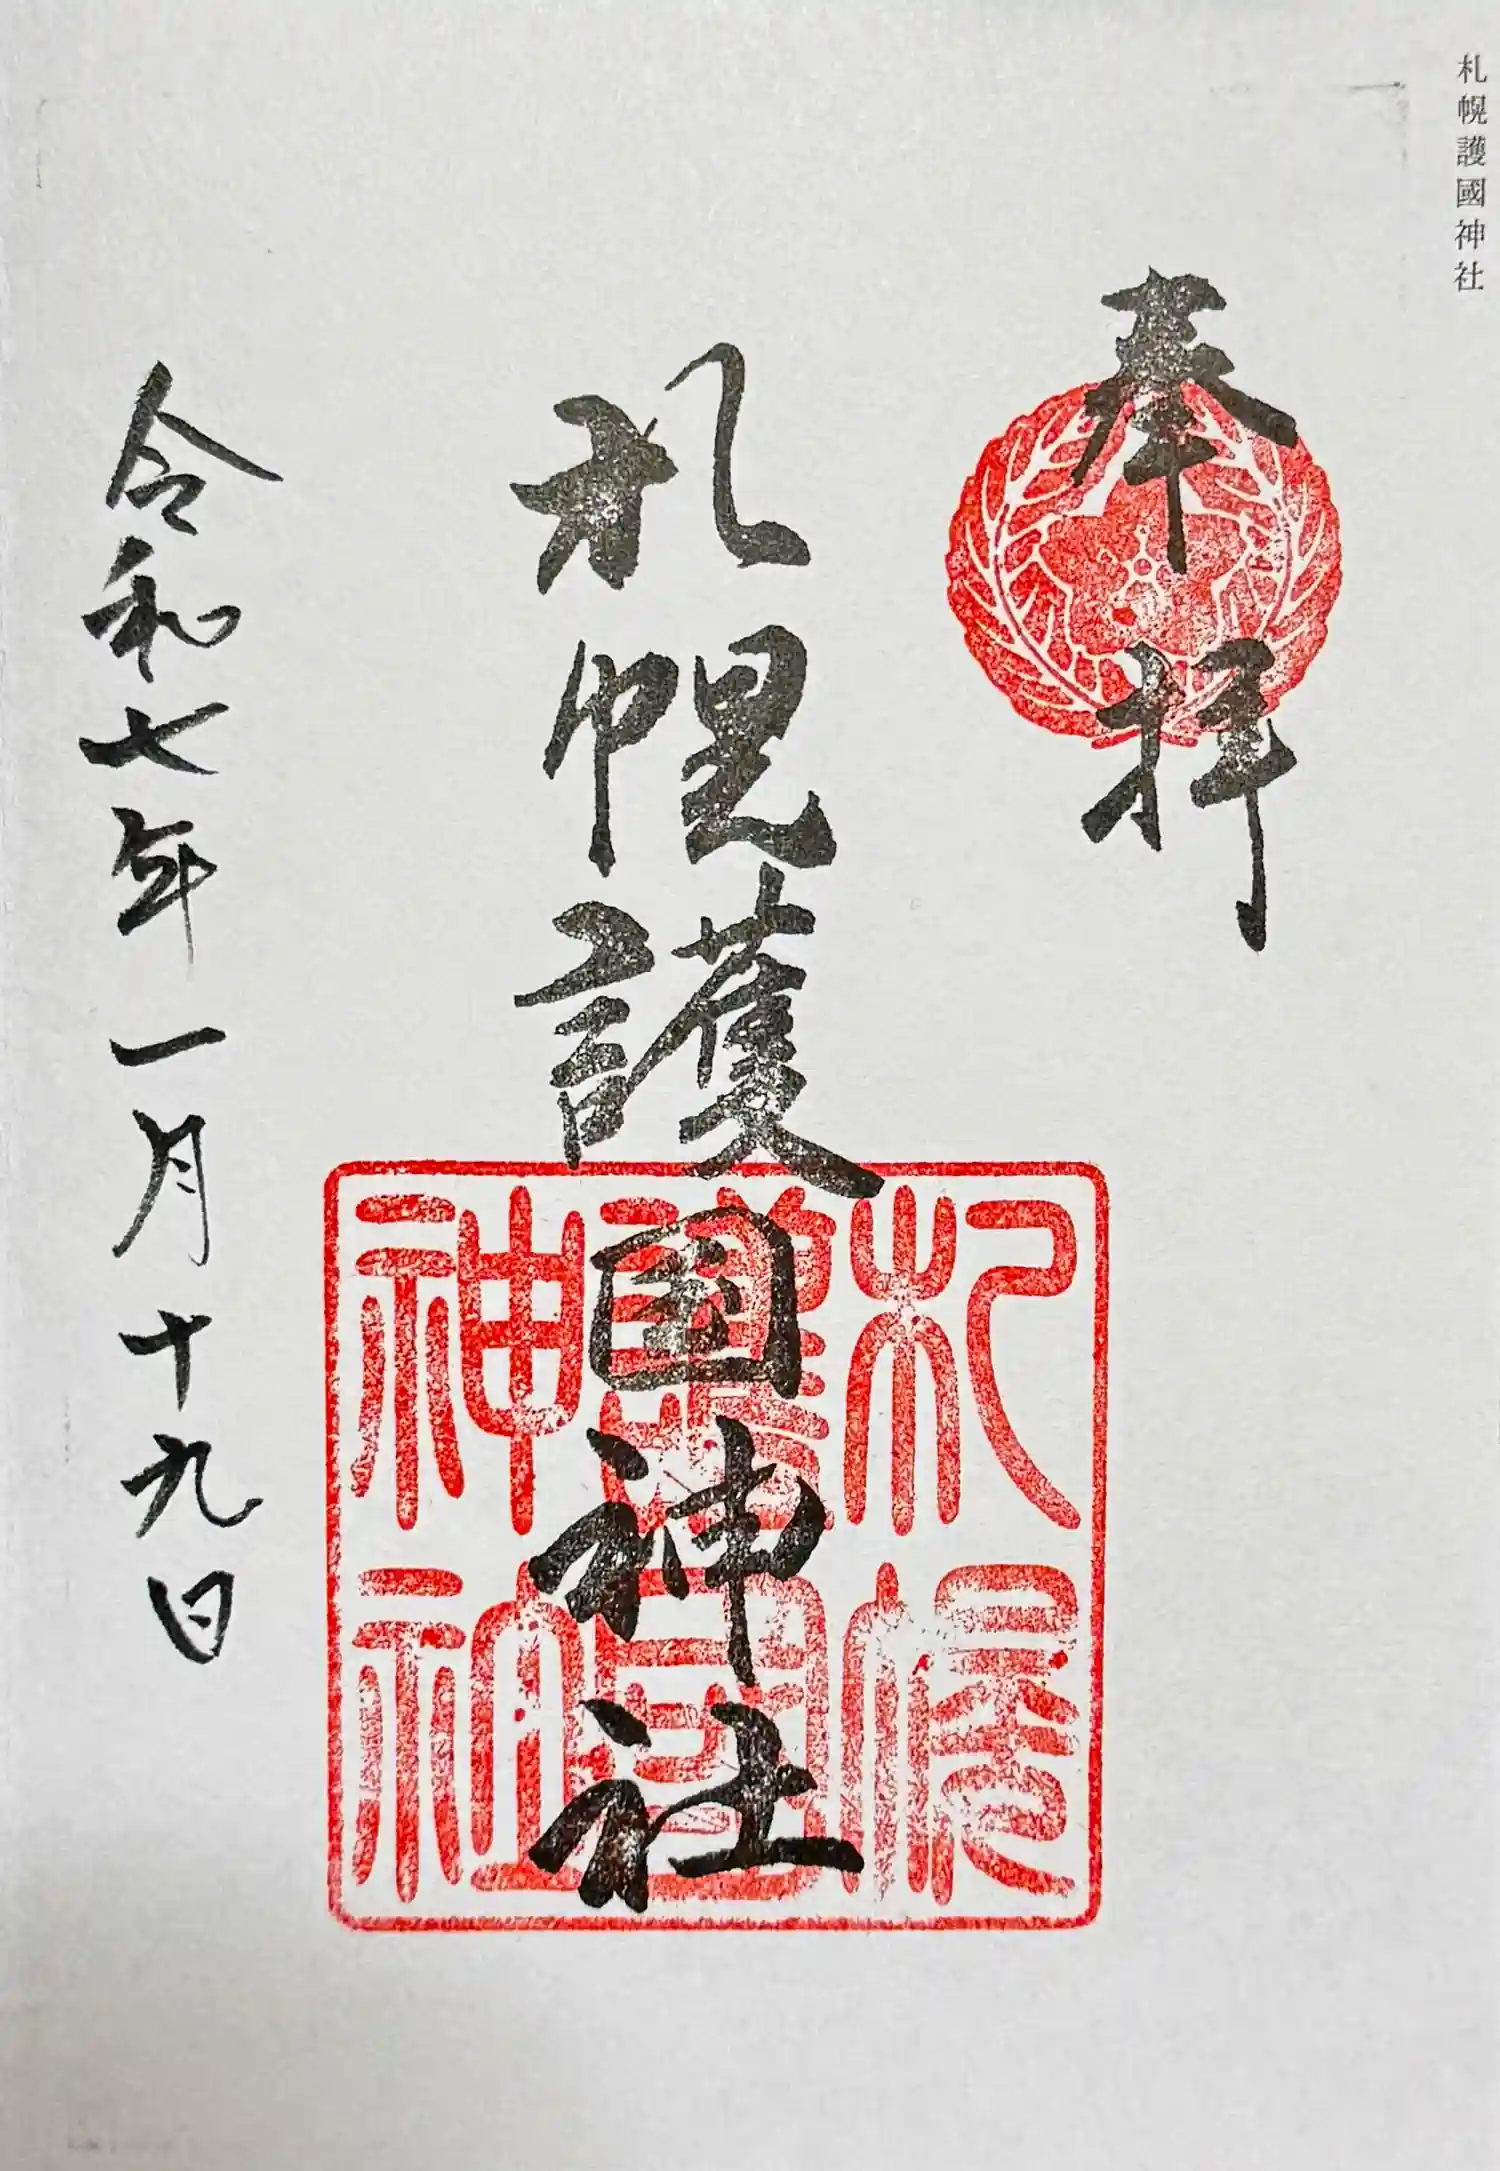 札幌護國神社
奉拝
札幌護国神社
札幌
護國
神社
令和七年一月十九日